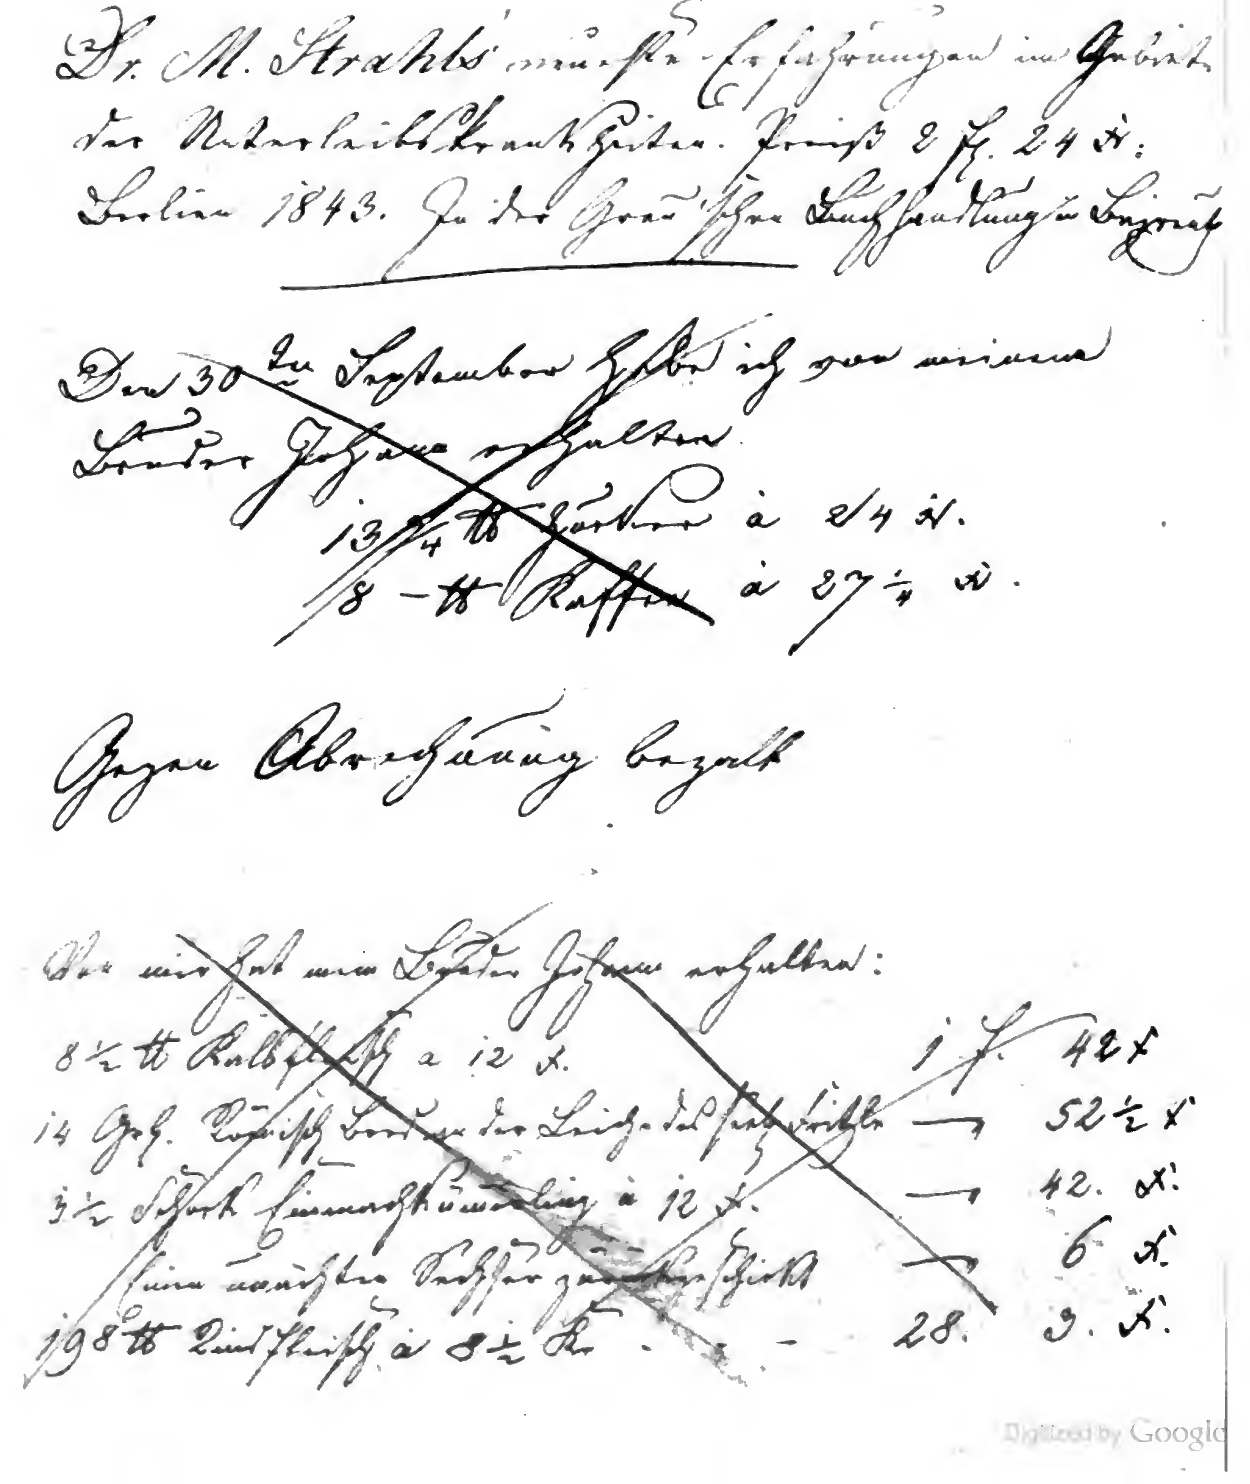 Dr. M. Strahls' neueste Erfahrungen im Gebiet
der Unterleibskrankheiten. Preiß 2 fl. 24 x:
Berlin 1843. In der Grau'schen Buchhandlung in
Den 30ten September habe ich von meinem
Bruder Johann erhalten
13 ¾ ℔ Zucker à 24 x.
8 – ℔ Kaffee à 27 ¼ x.
Gegen Abrechnung bezalt
Von mir hat mein Bruder Johann erhalten:
8 ½ ℔ Kalbfleisch a 12 x. 1 f. 42 x
14 Römisch der Leiche des — 52 ½ x
3 ½ Schock Einmachkümmerling à 12 x. — 42. x.
Einen Sechser zurückgeschickt — 6 x.
198 ℔ Rindfleisch à 8 ½ Kr - - - 28. 3. x.
Digitized by Google